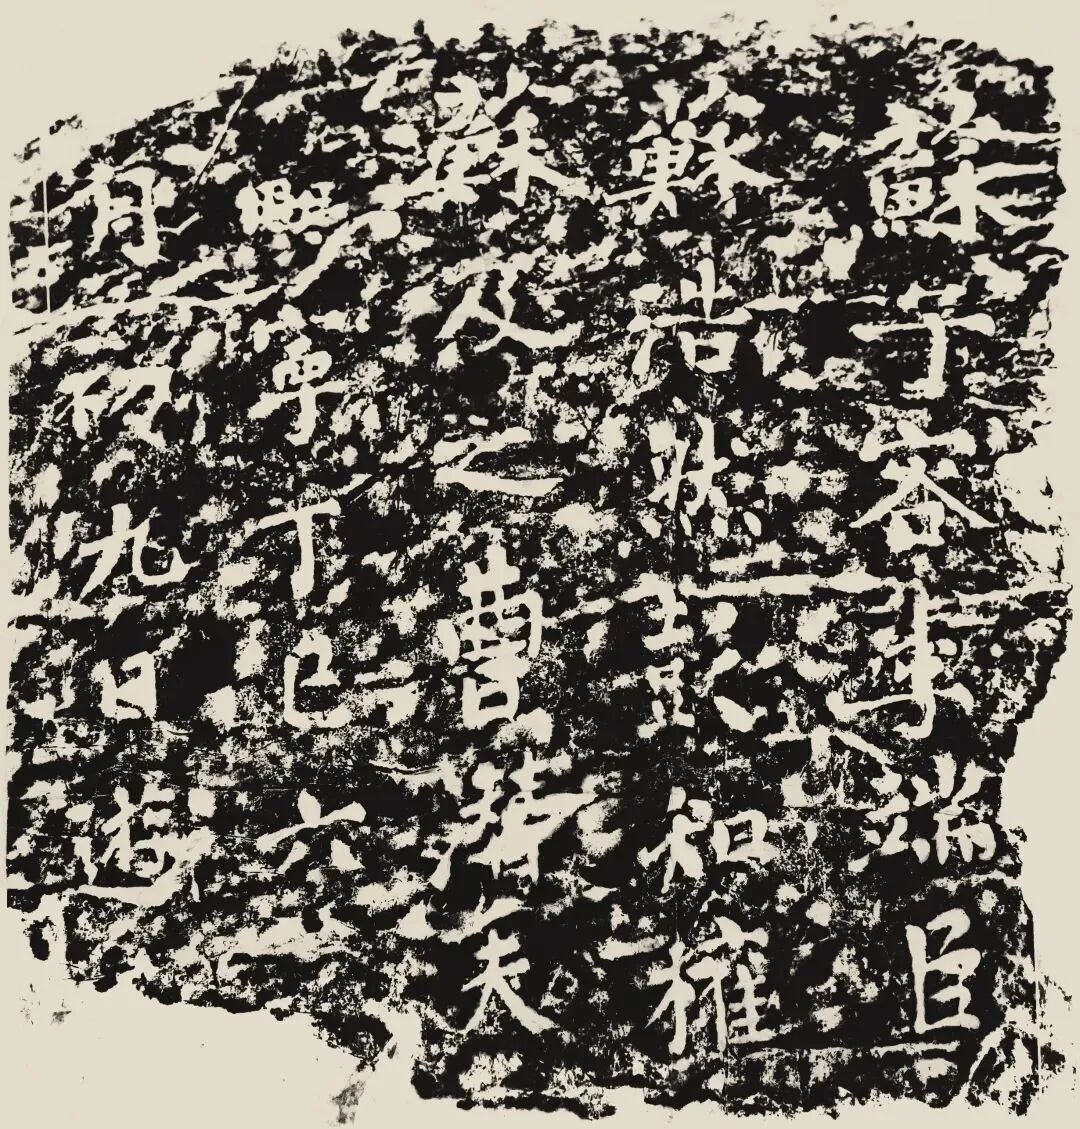 蘇子容李端臣
蘇浩然彭知權
蘇及之曹潛夫
熙寧丁巳六
月初九日遊